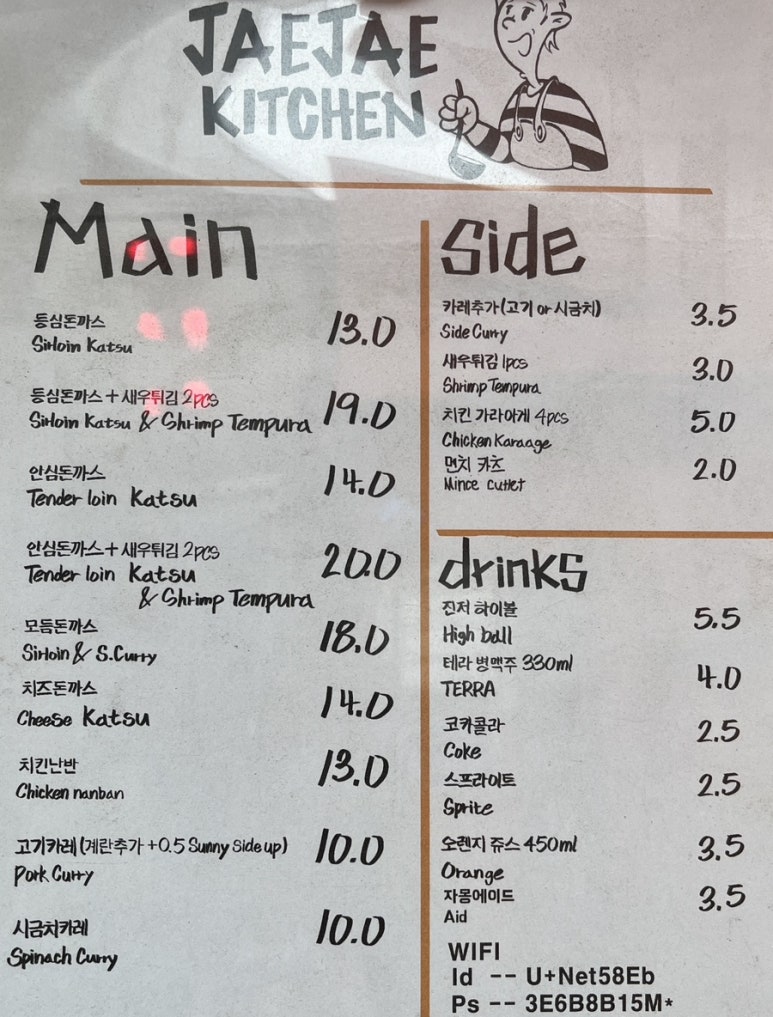 JAEJAE
KITCHEN
Main
등심돈까스
Sirloin Katsu
13.0
등심돈까스 + 새우튀김 2pcs
Sirloin Katsu & Shrimp Tempura
19.0
안심돈까스
Tender loin Katsu
14.0
안심돈까스 + 새우튀김 2pcs
Tender loin Katsu
& Shrimp Tempura
20.0
모듬돈까스
Sirloin & S.Curry
18.0
치즈돈까스
Cheese Katsu
14.0
치킨난반
Chicken nanban
13.0
고기카레 (계란추가 +0.5 Sunny Side up)
Pork Curry
10.0
시금치카레
Spinach Curry
10.0
Side
카레추가 (고기 or 시금치)
Side Curry
3.5
새우튀김 1pcs
Shrimp Tempura
3.0
치킨 가라아게 4pcs
Chicken Karaage
5.0
먼치 카츠
Mince cutlet
2.0
drinks
진저 하이볼
High ball
5.5
테라 병맥주 330ml
TERRA
4.0
코카콜라
Coke
2.5
스프라이트
Sprite
2.5
오렌지 쥬스 450ml
Orange
3.5
자몽에이드
Aid
3.5
WIFI
Id -- U+Net58Eb
Ps -- 3E6B8B15M*